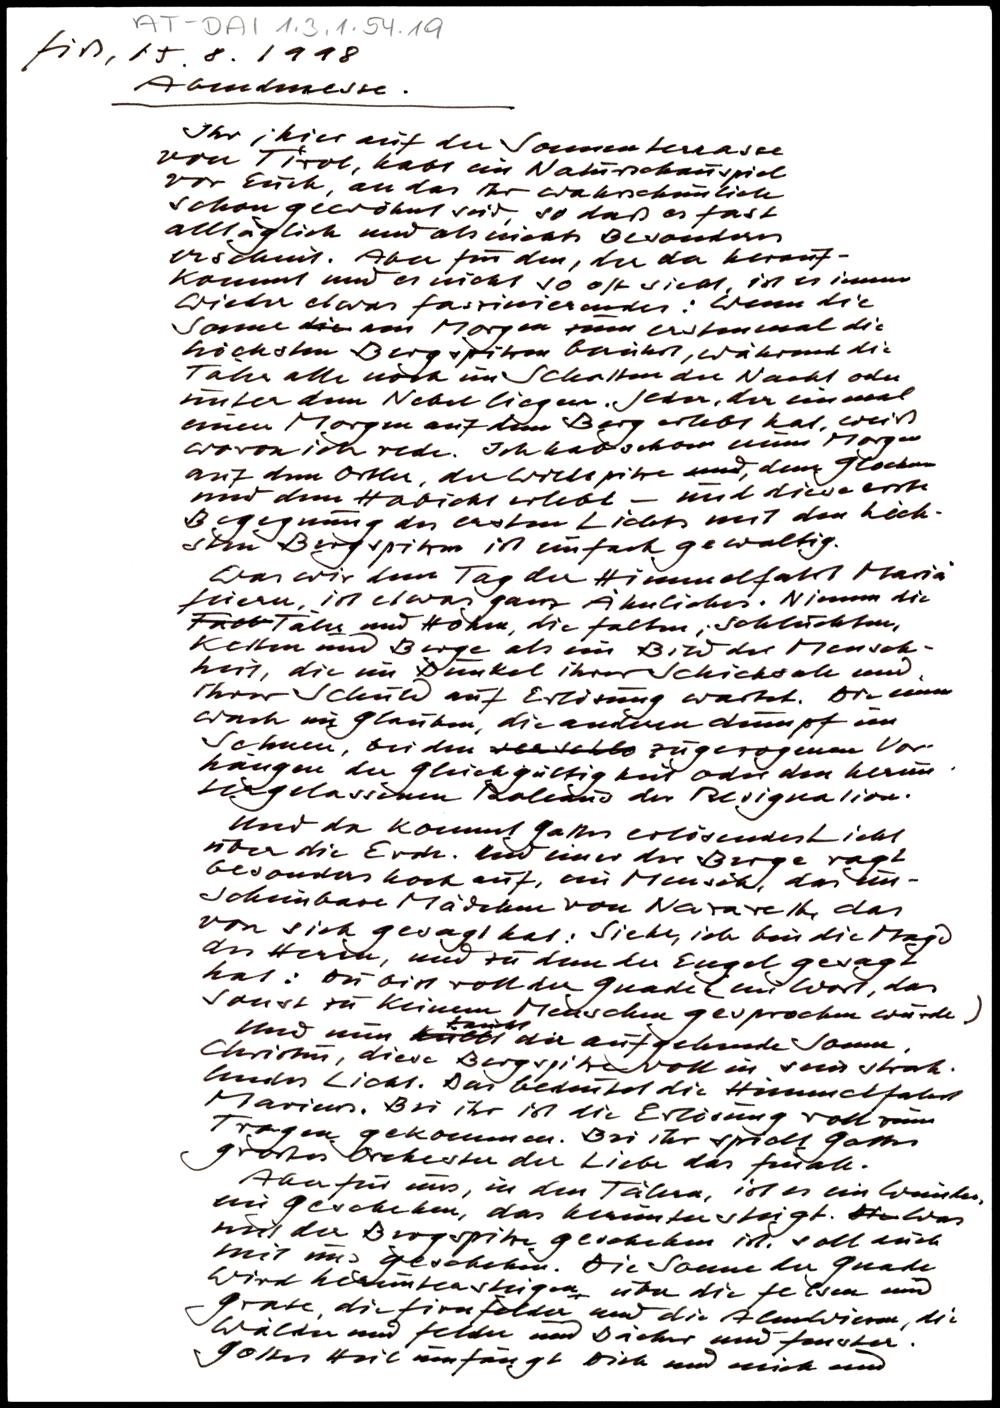 AT-DAI 1.3.1.54.19
Fiß, 15. 8. 1998
Abendmesse.
Ihr, hier auf der Sonnenterrasse
von Tirol, habt ein Naturschauspiel
vor Euch, an das Ihr wahrscheinlich
schon gewöhnt seid, so daß es fast
alltäglich und als nichts Besonderes
erscheint. Aber für den, der da herauf-
kommt und es nicht so oft sieht, ist es immer
wieder etwas faszinierendes: Wenn die
Sonne die am Morgen zum erstenmal die
höchsten Bergspitzen berührt, während die
Täler alle noch im Schatten der Nacht oder
unter dem Nebel liegen. Jeder, der einmal
einen Morgen auf dem Berg erlebt hat, weiß
wovon ich rede. Ich hab schon einen Morgen
auf dem Ortler, der Wildspitze und, dem Glockner
und dem Habicht erlebt – und diese erste
Begegnung des ersten Lichts mit den höch-
sten Bergspitzen ist einfach gewaltig.
Was wir dem Tag der Himmelfahrt Mariä
feiern, ist etwas ganz Ähnliches. Nimm die
Täler und Höhen, die Falten, Schluchten,
Ketten und Berge als ein Bild der Mensch-
heit, die im Dunkel ihrer Schicksale und
ihrer Schuld auf Erlösung wartet. Die einen
wach im Glauben, die anderen dumpf im
Schlafen, bei den zugezogenen Vor-
hängen der Gleichgültigkeit oder den herun-
tergelassenen Rolleaus der Resignation.
Und da kommt Gottes erlösendes Licht
über die Erde. Und einer der Berge ragt
besonders hoch auf, ein Mensch, das un-
scheinbare Mädchen von Nazareth, das
von sich gesagt hat: Siehe, ich bin die Magd
des Herrn, und zu dem der Engel gesagt
hat: Du bist voll der Gnade (ein Wort, das
sonst zu keinem Menschen gesprochen wurde)
Und nun taucht die aufgehende Sonne,
Christus, diese Bergspitze voll in sein strah-
lendes Licht. Das bedeutet die Himmelfahrt
Mariens. Bei ihr ist die Erlösung voll zum
Tragen gekommen. Bei ihr spielt Gottes
großes Orchester der Liebe das Finale.
Aber für uns, in den Tälern, ist es ein Wunder,
ein Geschehen, das heruntersteigt. Die Was
mit der Bergspitze geschehen ist, soll auch
mit uns geschehen. Die Sonne der Gnade
wird heruntersteigen, über die Felsen und
Grate, die Firnfelder und die Almwiesen, die
Wälder und Felder und Dächer und Fenster.
Gottes Heil umfängt Dich und mich und